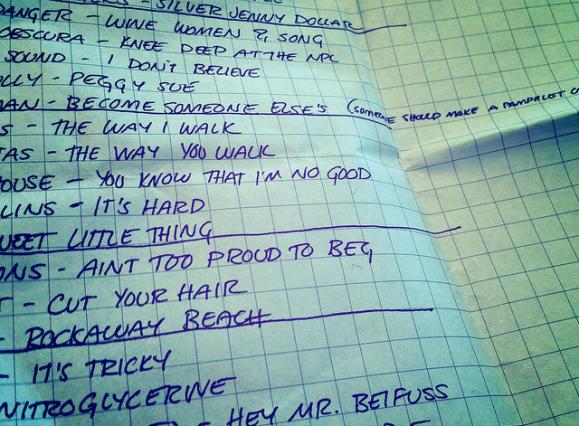 - SILVER JENNY DOLLAR
ANGER - WINE WOMEN & SONG
OBSCURA - KNEE DEEP AT THE NPL
SOUND - I DON'T BELIEVE
LLY - PEGGY SUE
MAN - BECOME SOMEONE ELSE'S (SOMEONE SHOULD MAKE A PAMPHLET
S - THE WAY I WALK
TAS - THE WAY YOU WALK
OUSE - YOU KNOW THAT I'M NO GOOD
LLINS - IT'S HARD
WEET LITTLE THING
ONS - AINT TOO PROUD TO BEG
T - CUT YOUR HAIR
- ROCKAWAY BEACH
- IT'S TRICKY
NITROGLYCERINE
- HEY MR. BEIFUSS